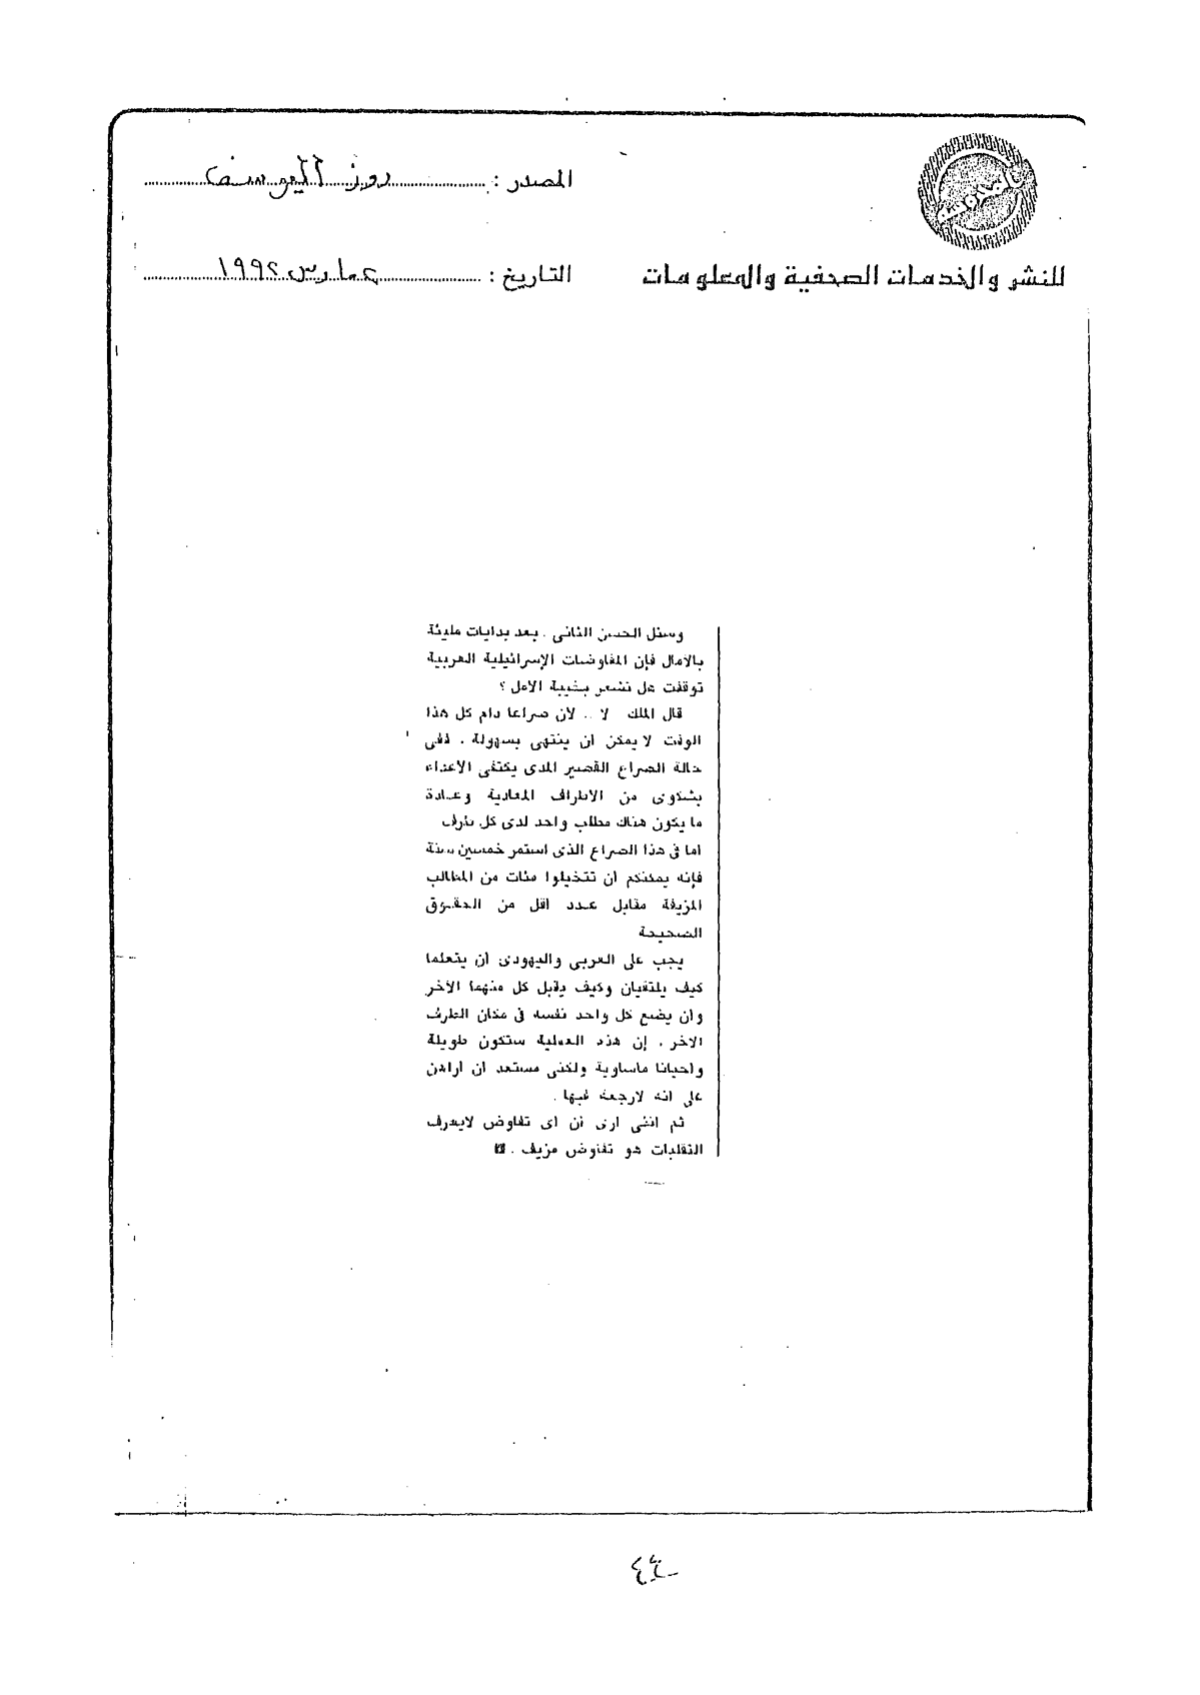 المصدر : روز اليوسف
للنشر والخدمات الصحفية والمعلومات
التاريخ : مارس ١٩٩٢
وسئل الحسن الثانى . بعد بدايات مليئة
بالامال فإن المفاوضات الإسرائيلية العربية
توقفت هل تشعر بخيبة الامل ؟
قال الملك لا .. لان صراعا دام كل هذا
الوقت لا يمكن ان ينتهى بسهولة . ففى
حالة الصراع القصير المدى يكتفى الاعداء
بشكوى من الاطراف المعادية وعادة
ما يكون هناك مطلب واحد لدى كل طرف
اما فى هذا الصراع الذى استمر خمسين سنة
فإنه يمكنكم ان تتخيلوا مئات من المطالب
المزيفة مقابل عدد اقل من الحقوق
الصحيحة
يجب على العربى واليهودى أن يتعلما
كيف يلتقيان وكيف يقبل كل منهما الآخر
وان يضع كل واحد نفسه فى مكان الطرف
الاخر . إن هذه العملية ستكون طويلة
واحيانا ماساوية ولكنى مستعد ان اراهن
على انه لارجعة فيها .
ثم اننى ارى أن اى تفاوض لايعرف
التقلبات هو تفاوض مزيف .